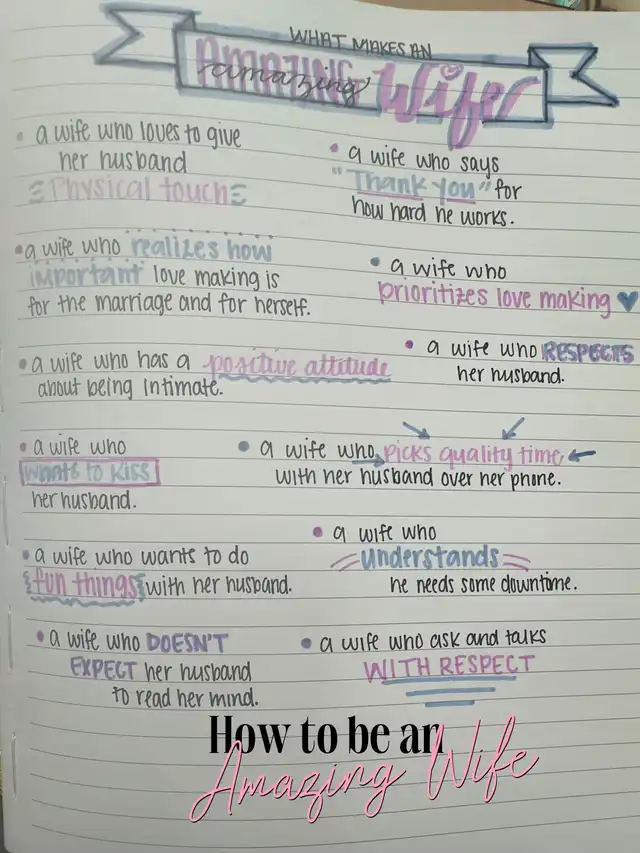 WHAT MAKES AN
AMAZING
amazing
Wife
• a wife who loves to give
her husband
Physical touch
• a wife who realizes how
important love making is
for the marriage and for herself.
• a wife who has a positive attitude
about being intimate.
• a wife who
wants to kiss
her husband.
• a wife who wants to do
{fun things} with her husband.
• a wife who DOESN'T
EXPECT her husband
to read her mind.
• a wife who says
"Thank you" for
how hard he works.
• a wife who
prioritizes love making
• a wife who RESPECTS
her husband.
• a wife who picks quality time
with her husband over her phone.
• a wife who
understands
he needs some downtime.
• a wife who ask and talks
WITH RESPECT
How to be an
Amazing Wife